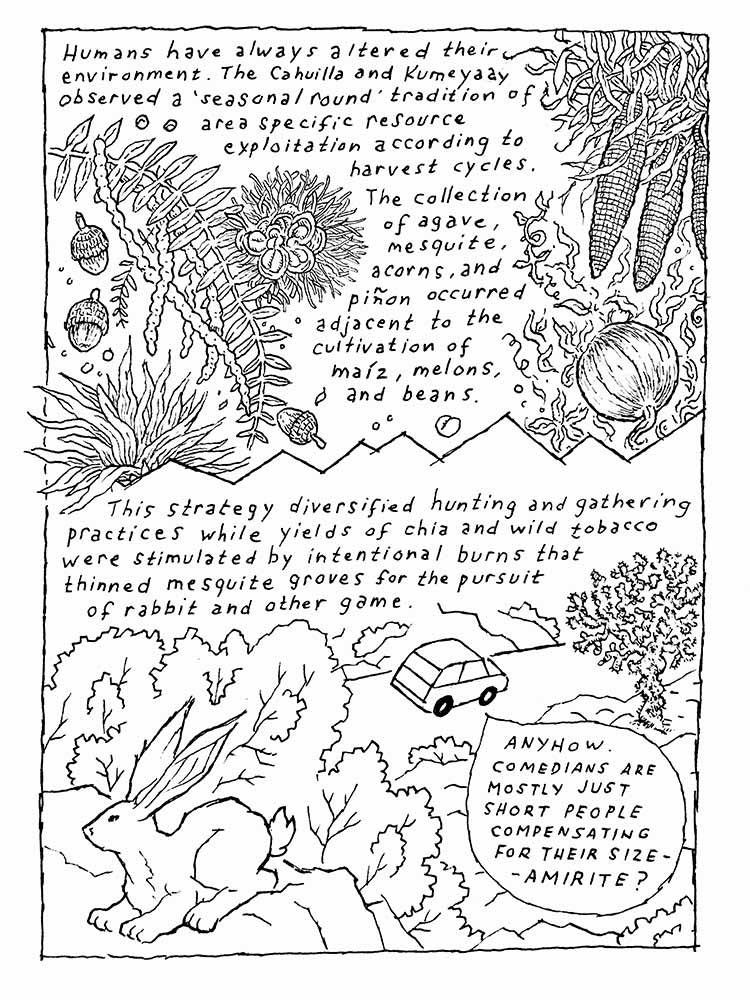 Humans have always altered their
environment. The Cahuilla and Kumeyaay
observed a 'seasonal round' tradition of
area specific resource
exploitation according to
harvest cycles.
The collection
of agave,
mesquite,
acorns, and
piñon occurred
adjacent to the
cultivation of
maíz, melons,
and beans.
This strategy diversified hunting and gathering
practices while yields of chia and wild tobacco
were stimulated by intentional burns that
thinned mesquite groves for the pursuit
of rabbit and other game.
ANYHOW.
COMEDIANS ARE
MOSTLY JUST
SHORT PEOPLE
COMPENSATING
FOR THEIR SIZE-
-AMIRITE?